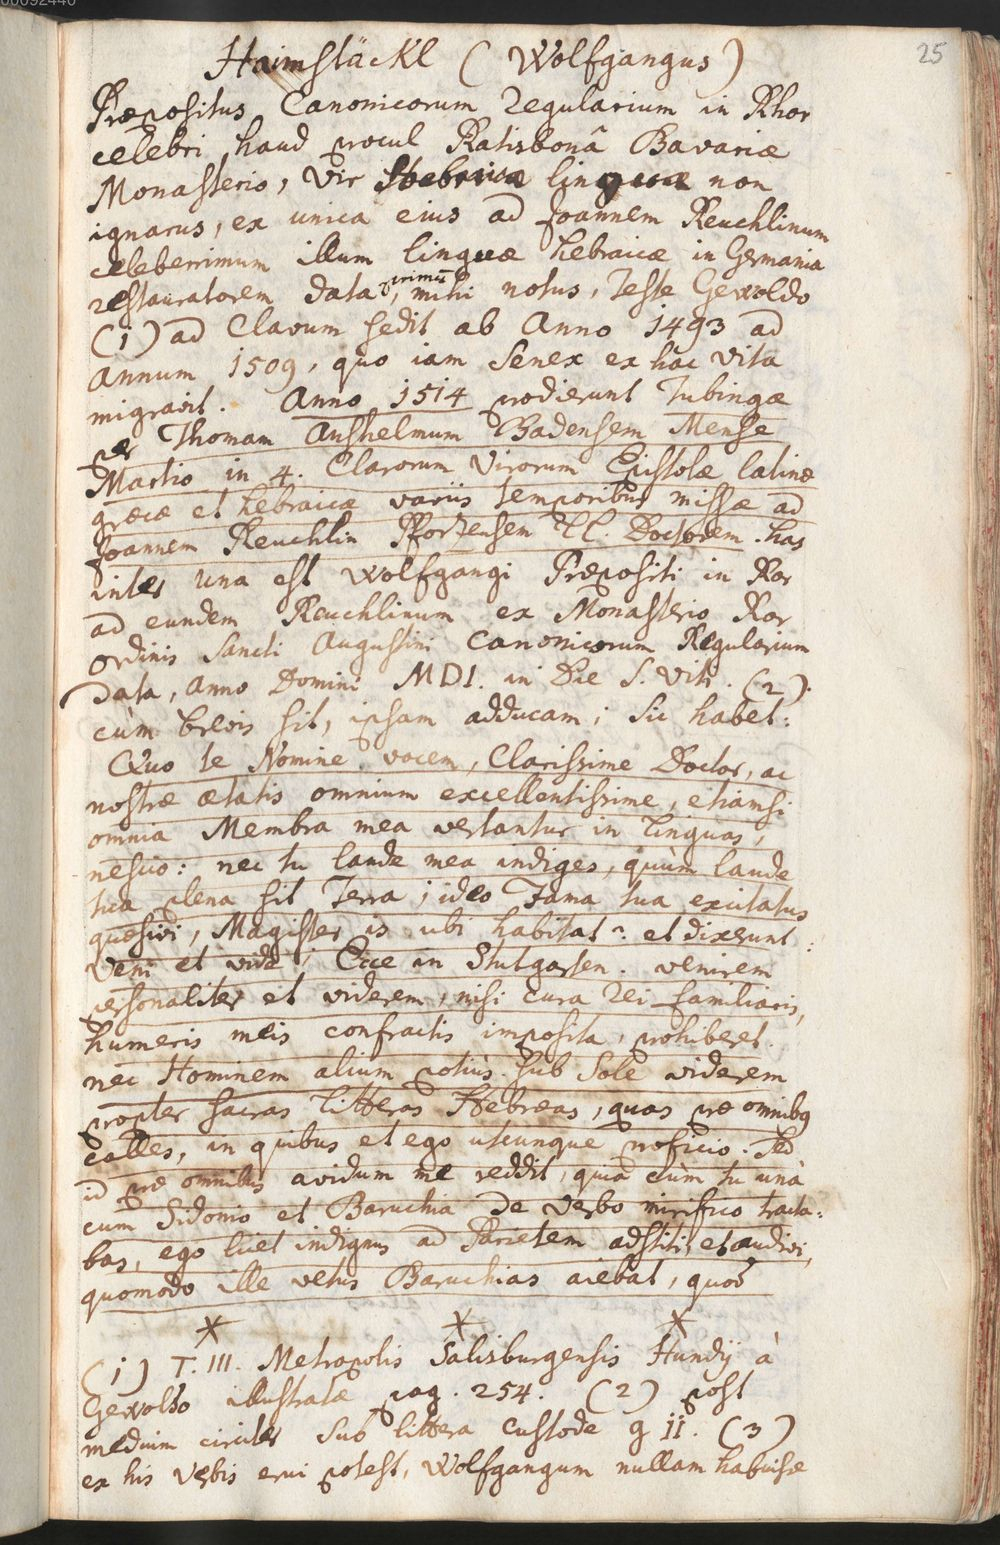 00092440
25
Haimstäckl (Wolfgangus)
Præpositus Canonicorum Regularium in Rhor
celebri haud procul Ratisbonâ Bavariæ
Monasterio, Vir Hebraicæ linguæ non
ignarus, ex unica eius ad Joannem Reuchlinum
celeberrimum illum linguæ hebraicæ in Germania
restauratorem data, mihi notus, teste Gewoldo
primùm
(1) ad Clavum sedit ab Anno 1493 ad
Annum 1509, quo iam Senex ex hac vita
migravit. Anno 1514 prodierunt Tubingæ
per Thomam Anshelmum Badensem Mense
Martio in 4. Clarorum Virorum Epistolæ latinæ
græcæ et hebraicæ variis temporibus missæ ad
Joannem Reuchlin Pforzensem LL. Doctorem. has
inter una est Wolfgangi Præpositi in Ror
ad eundem Reuchlinum ex Monasterio Ror
ordinis Sancti Augustini Canonicorum Regularium
data, Anno Domini MDI. in Die S. Viti. (2).
cùm brevis sit, ipsam adducam; sic habet:
Quo te Nomine vocem, Clarissime Doctor, ac
nostræ ætatis omnium excellentissime, etiamsi
omnia Membra mea vertantur in linguas,
nescio: nec tu laude mea indiges, quùm laude
tua plena sit Terra; ideo Fama tua excitatus
quæsivi, Magister is ubi habitat? et dixerunt:
Veni et vide; Ecce in Stutgarten. venirem
personaliter et viderem, nisi cura rei familiaris,
humeris meis confractis imposita, prohiberet.
nec Hominem alium potiùs sub Sole viderem
propter sacras litteras Hebræas, quas præ omnibus
calles, in quibus et ego utcunque proficio. Sed
id præ omnibus avidum me reddit, quia cùm tu unà
cum Sidonio et Baruchia de verbo mirifico tracta=
bas, ego licet indignus ad Parietem adstiti, et audivi,
quomodo ille vetus Baruchias aiebat, quod
* * *
(1) T. III. Metropolis Salisburgensis Hundij à
Gewoldo illustratæ pag. 254. (2) post
medium circiter sub littera custode g ii. (3)
ex his verbis erui potest, Wolfgangum nullam habuisse